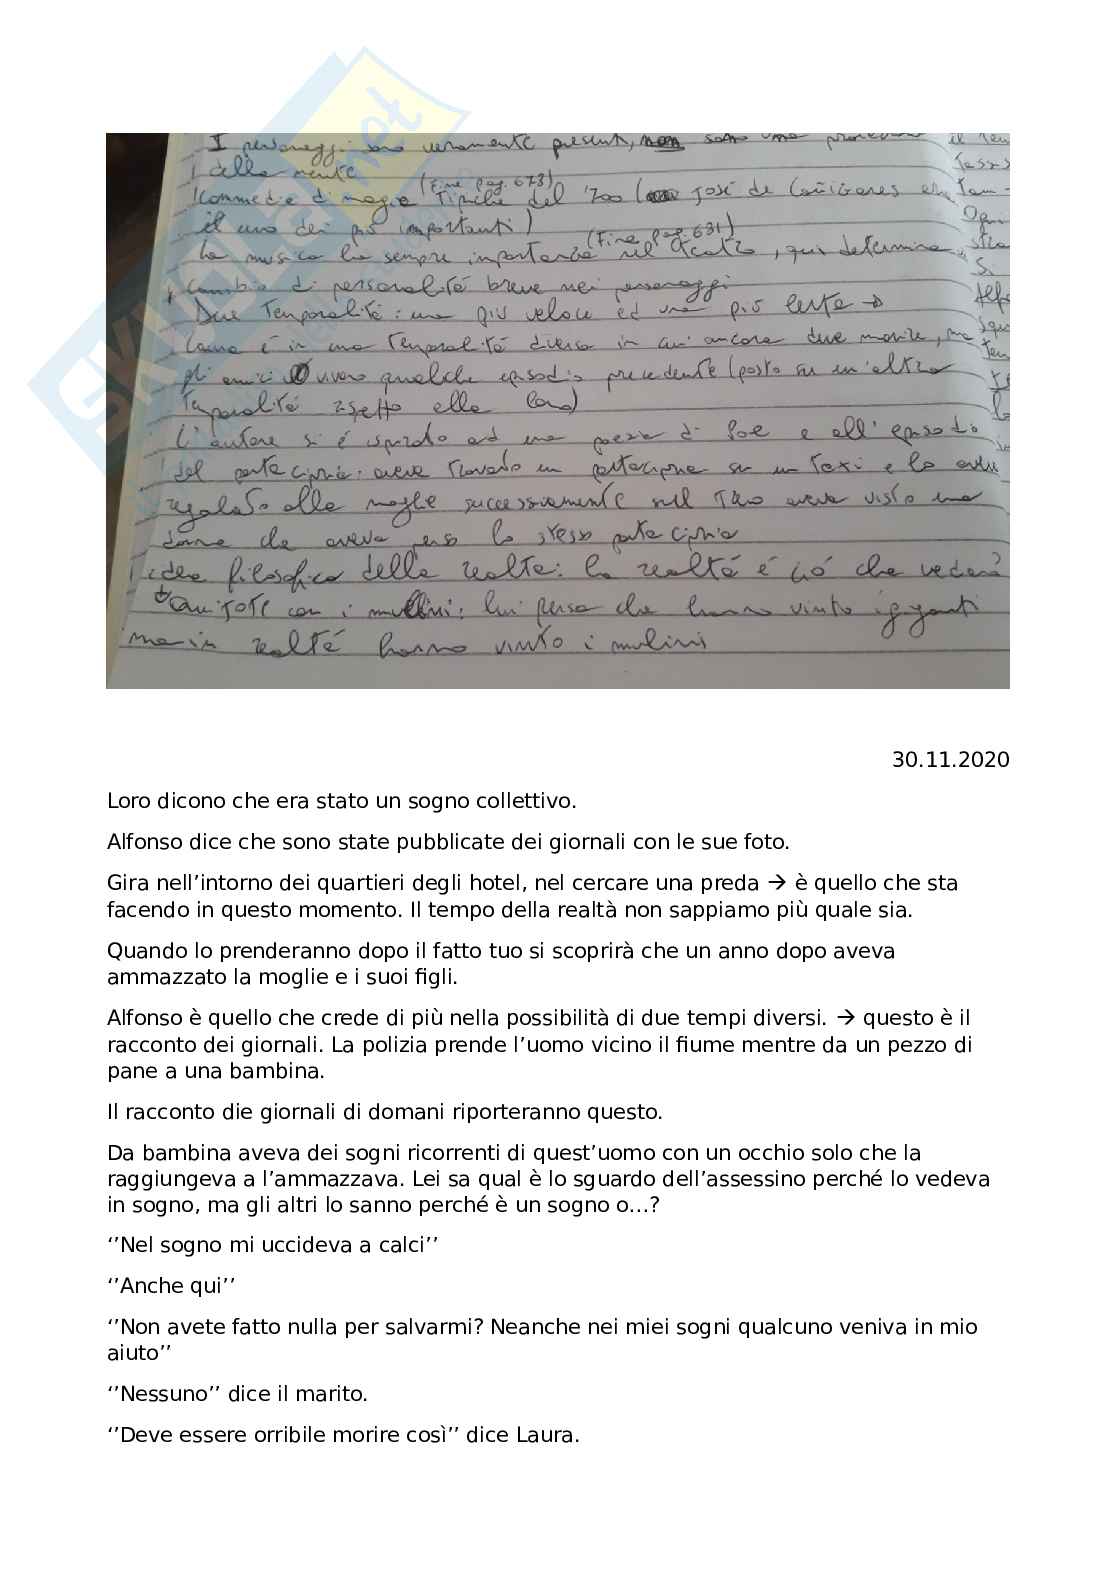 I personaggi sono veramente presenti, non sono una proiezione
della mente (Fine pag. 673)
Commedie di magia tipiche del '700 ( José de Cañizares era
il uno dei più importanti) (Fine pag 681)
La musica ha sempre importanza nel teatro, qui determina
cambio di personalità breve nei personaggi
Due temporalità: una più veloce ed una più lenta →
Laura è in una temporalità diversa in cui ancora deve morire, ma
gli amici vivono qualche episodio precedente (posto su un'altra
temporalità rispetto alla loro)
L'autore si è ispirato ad una poesia di Poe e all'episodio
del portacipria: aveva trovato un portacipria su un taxi e lo aveva
regalato alla moglie successivamente sul aveva visto una
donna che aveva perso lo stesso portacipria
idea filosofica della realtà: la realtà è ciò che vediamo?
Quijote con i mulini: lui pensa che hanno vinto i giganti
ma in realtà hanno vinto i mulini
30.11.2020
Loro dicono che era stato un sogno collettivo.
Alfonso dice che sono state pubblicate dei giornali con le sue foto.
Gira nell’intorno dei quartieri degli hotel, nel cercare una preda → è quello che sta
facendo in questo momento. Il tempo della realtà non sappiamo più quale sia.
Quando lo prenderanno dopo il fatto tuo si scoprirà che un anno dopo aveva
ammazzato la moglie e i suoi figli.
Alfonso è quello che crede di più nella possibilità di due tempi diversi. → questo è il
racconto dei giornali. La polizia prende l’uomo vicino il fiume mentre da un pezzo di
pane a una bambina.
Il racconto die giornali di domani riporteranno questo.
Da bambina aveva dei sogni ricorrenti di quest’uomo con un occhio solo che la
raggiungeva a l’ammazzava. Lei sa qual è lo sguardo dell’assessino perché lo vedeva
in sogno, ma gli altri lo sanno perché è un sogno o…?
‘’Nel sogno mi uccideva a calci’’
‘’Anche qui’’
‘’Non avete fatto nulla per salvarmi? Neanche nei miei sogni qualcuno veniva in mio
aiuto’’
‘’Nessuno’’ dice il marito.
‘’Deve essere orribile morire così’’ dice Laura.